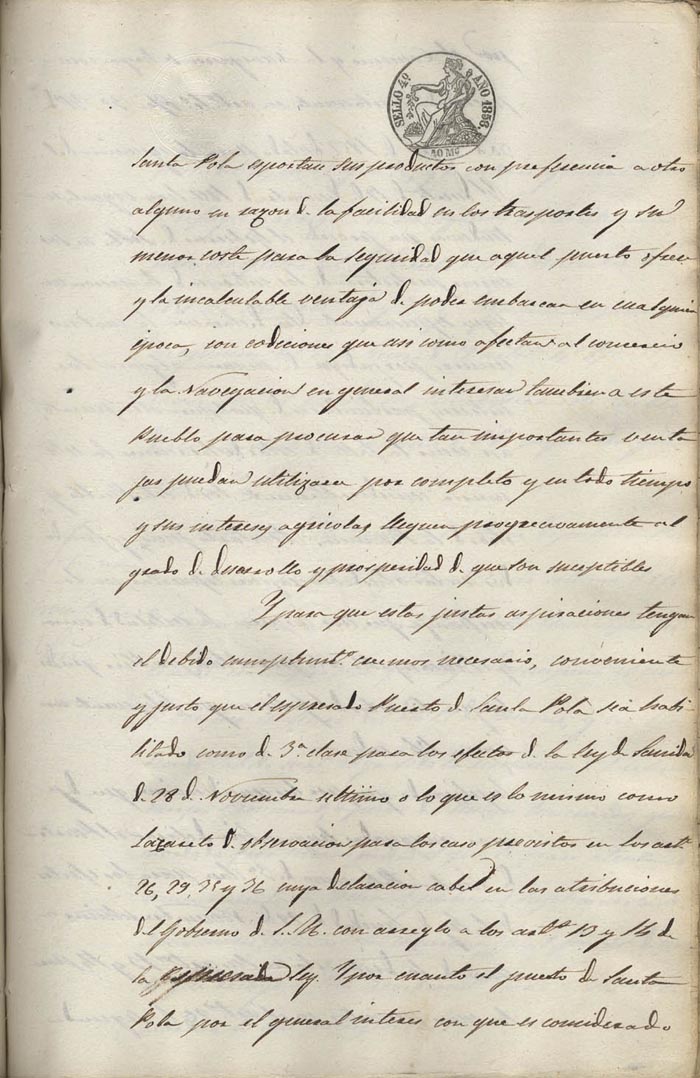 SELLO 4º AÑO 1858.
40 Mº
Santa Pola esportan sus productos con preferencia a otro
alguno en razon d. la facilidad en los trasportes y su
menor coste para la seguridad que aquel puerto ofrece
y la incalculable ventaja d. poder embarcar en cualquier
época, son codiciones que asi como afectan al comercio
y la Navegacion en general interesan tambien a este
Pueblo para procurar que tan importantes venta
jas puedan utilizarse por completo y en todo tiempo
y sus intereses agricolas lleguen progresivamente al
grado d. desarrollo y prosperidad d. que son suceptibles
Y para que estas justas aspiraciones tengan
el debido cumplimtº. creemos necesario, conveniente
y justo que el espresado Puerto d. Santa Pola sea habi
litado como d. 3ª clase para los efectos d. la ley de Sanidad
d. 28 d. Noviembre seltimo o lo que es lo mismo como
Lazareto d. observacion para los caso previstos en los artˢ
26, 29, 35 y 36 cuya declaracion cabe en las atribuciones
del Gobierno de S. M. con arreglo a los artˢ 13 y 14 de
la espresada ley. Y por cuanto el puerto de Santa
Pola por el general interes con que es considerado